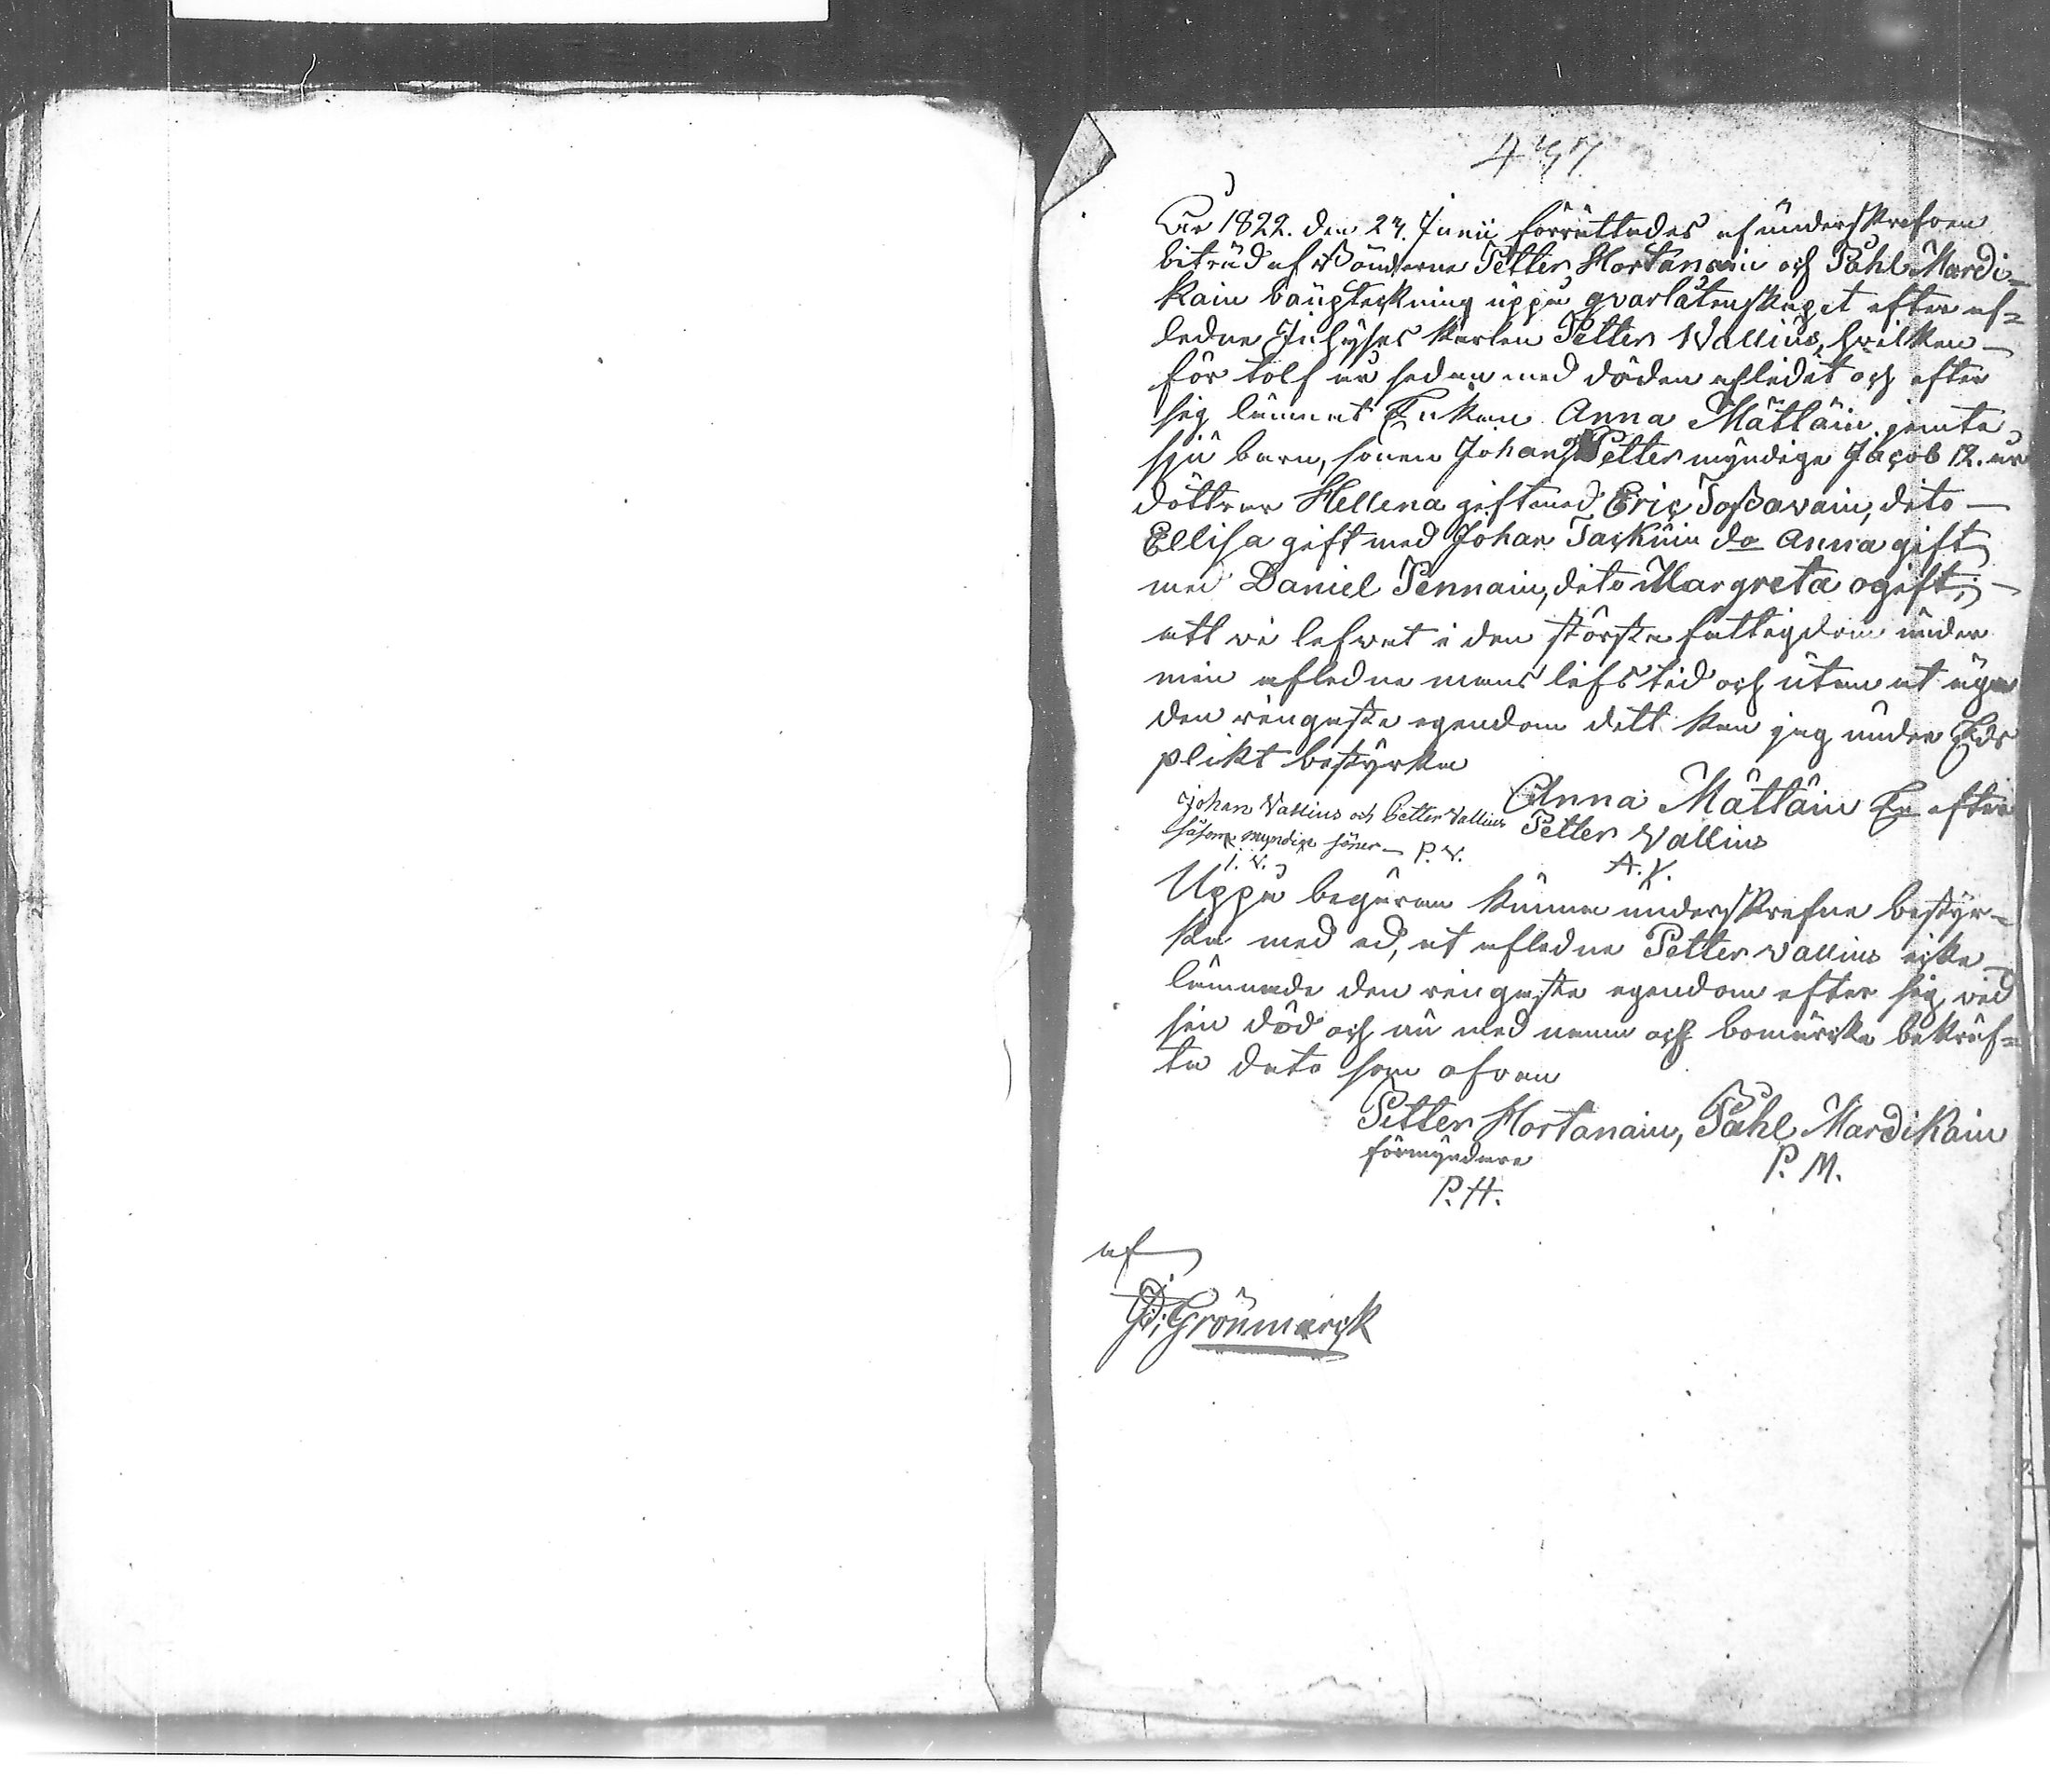 År 1822. den 27. Junii förrättades af underskrefven
biträd af Bönderne Petter Hortanain och Påhl Mardi=
kain bouptekning uppå qvarlåtenskapet efter af=
ledne Inhyses karlen Petter Wallius, hvilken
för tolf år sedan med döden aflidit och efter
sig lämnat Enkan Anna Mättäin jemte
sju barn, sonen Johan, Petter myndige Jacob 12. år
döttrar Hellena gift med Eric Toßavain, dito
Ellisa gift med Johan Tackuin do Anna gift
med Daniel Pennain, dito Margreta ogift;
att vi lefvat i den största fattigdom under
min afledne mans lifstid och utan at äga
den ringaste egendom dett kan jag under Eds
plikt bestyrka
Anna Mättäin En efter
Petter Wallius
A.
Johan Vallius och Petter Vallius
såsom myndige söner P. V.
J. V.
Uppå begäran kunna underskrefne bestyr=
ka med ed, at afledne Petter Vallius icke
lämnade den ringaste egendom efter sig vid
sin död och nu med namn och bomärcke bekräf=
ta dato som ofvan
Petter Hortanain, Påhl Mardikain
förmyndare
P. M.
P. H.
af
Grönmarck